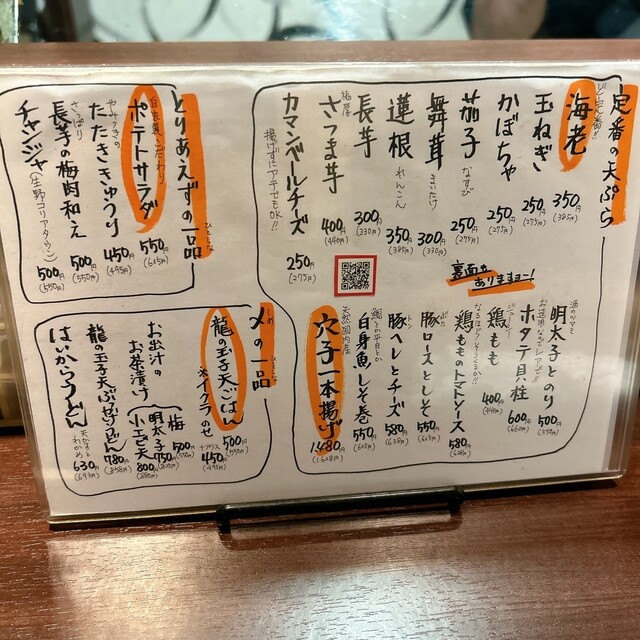 定番の天ぷら
ど定番!!
海老
350円
(385円)
玉ねぎ
250円
(275円)
かぼちゃ
250円
(275円)
茄子
なすび
250円
(275円)
舞茸
まいたけ
300円
(330円)
蓮根
れんこん
350円
(385円)
長芋
300円
(330円)
さつま芋
400円
(440円)
カマンベールチーズ
揚げずにアテでもOK!!
250円
(275円)
裏面も
ありますョー!
酒のツマミ
明太子とのり
500円
(550円)
お造り用なのでレアで!!
ホタテ貝柱
600円
(660円)
ジューシー
鶏もも
400円
(440円)
鶏もものトマトソース
580円
(638円)
豚ロースとしそ
550円
(605円)
豚ヘレとチーズ
580円
(638円)
白身魚しそ巻
550円
(605円)
天然国内産
穴子一本揚げ
1480円
(1,628円)
とりあえずの一品
ひとしな
自家製こだわり
ポテトサラダ
550円
(605円)
やみつきの
たたききゅうり
450円
(495円)
さっぱり
長芋の梅肉和え
500円
(550円)
チャンジャ(生野コリアタウン)
500円
(550円)
〆の一品
しめ
ひとしな
龍の玉子天ごはん
500円
(550円)
※イクラのせ
プラス
450円
(495円)
お出汁の
お茶漬け
梅
500円
(550円)
明太子
750円
小エビ天
800円
(880円)
龍の玉子天ぶっかけうどん
780円
(858円)
はいからうどん
天かすと
わかめ
630円
(693円)